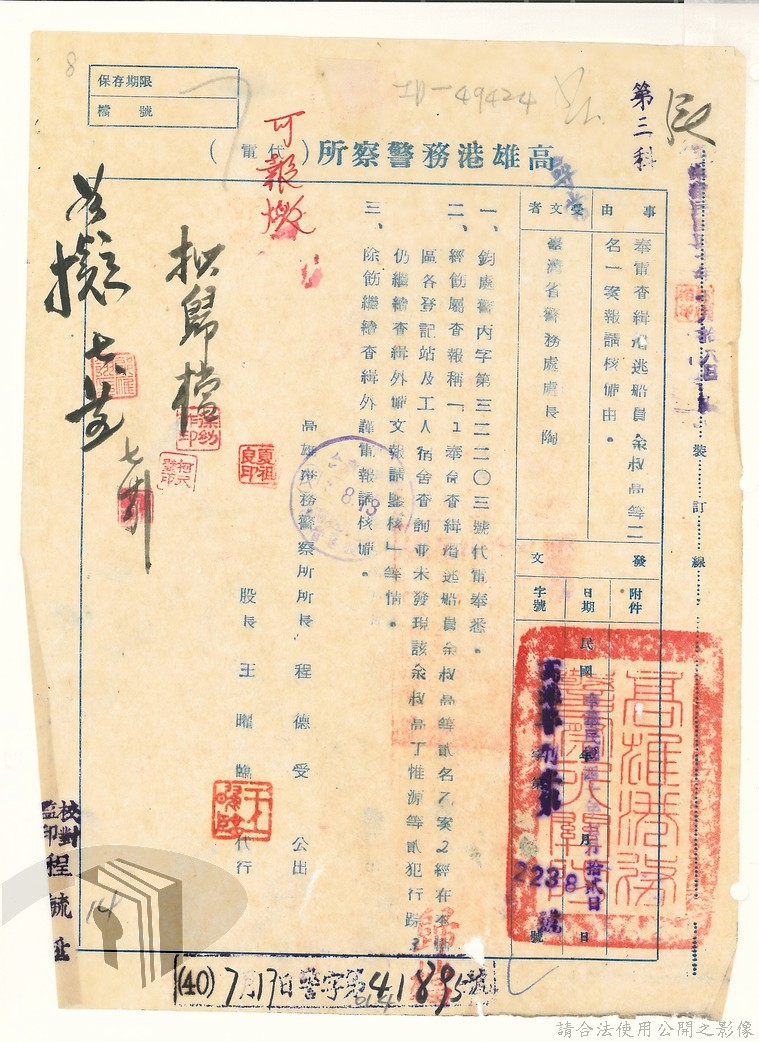 保存期限
檔號
8
ID-49424
第三科
可報燬
高雄港務警察所（代電）
事由
奉電查緝潛逃船員余叔禹等二名一案報請核備由。
受文者
臺灣省警務處處長陶
發文
附件
日期
民國 年 月 日
拾貳日
字號
2238號
一、鈞處警內字第三二二〇三號代電奉悉。
二、經飭屬查報稱「1奉令查緝潛逃船員余叔禹等貳名乙案2經在本
區各登記站及工人宿舍查詢並未發現該余叔禹丁惟源等貳犯行踪3
仍繼續查緝外備文報請鑒核」等情。
三、除飭繼續查緝外謹電報請核備。
高雄港務警察所所長 程德受 公出
股長 王曜臨 代行
擬歸檔
如擬
夏祖良印
8.13
高雄港務警察所關防
歸檔
裝訂線
校對
監印
程毓
14
(40)7月17日警字第41895號
請合法使用公開之影像